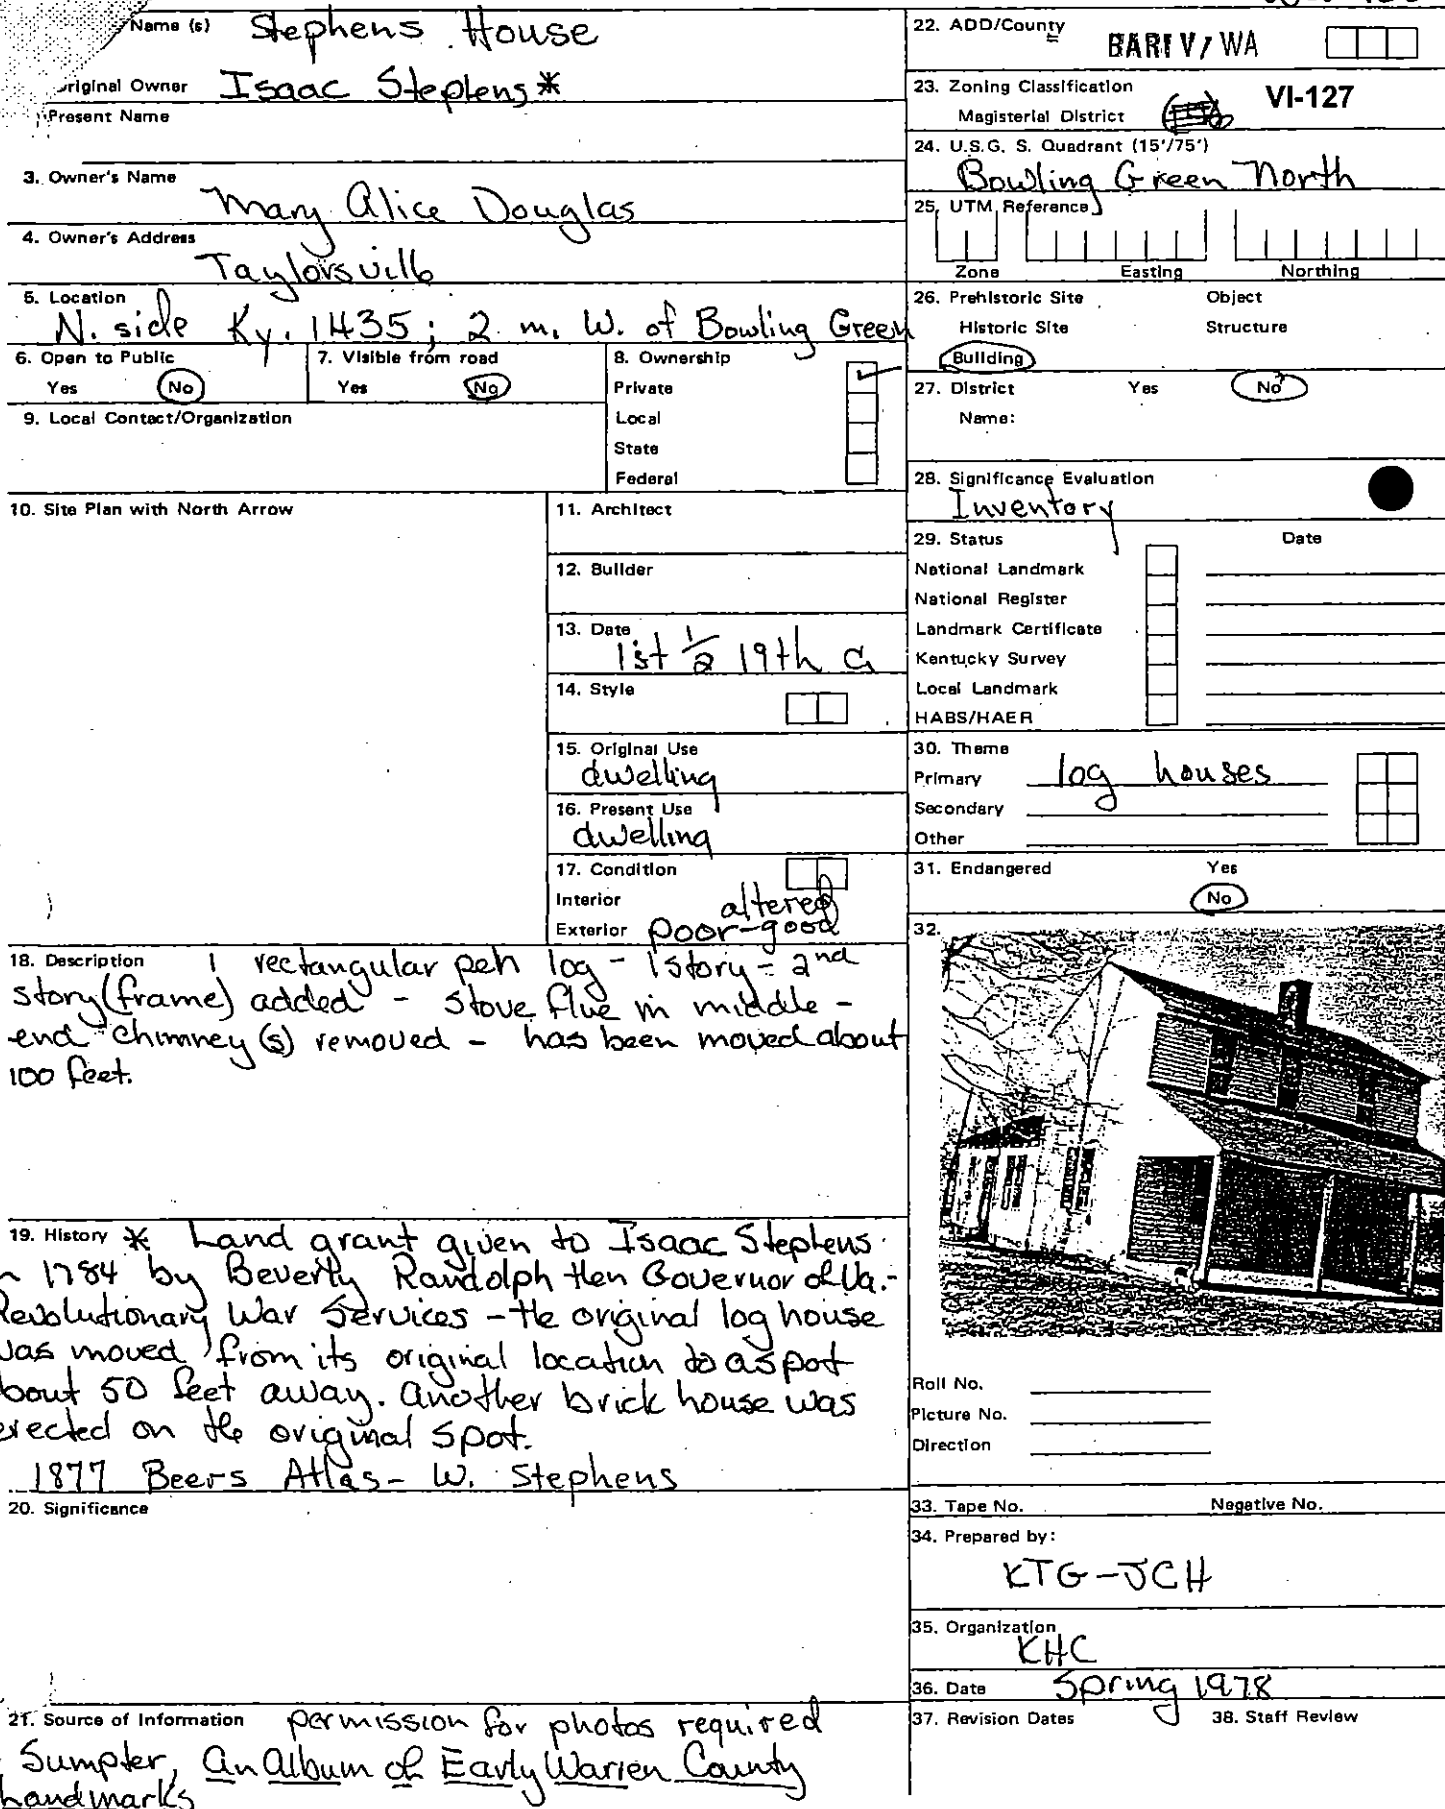 Name (s) Stephens House
Original Owner Isaac Stephens*
Present Name
3. Owner's Name
Mary Alice Douglas
4. Owner's Address
Taylorsville
5. Location
N. side Ky. 1435; 2 m. W. of Bowling Green
6. Open to Public
Yes No
7. Visible from road
Yes No
8. Ownership
Private
Local
State
Federal
9. Local Contact/Organization
10. Site Plan with North Arrow
11. Architect
12. Builder
13. Date
1st ½ 19th C
14. Style
15. Original Use
dwelling
16. Present Use
dwelling
17. Condition
Interior altered
Exterior poor-good
18. Description 1 rectangular pen log - 1 story - 2nd
story (frame) added - stove flue in middle -
end chimney(s) removed - has been moved about
100 feet.
19. History * Land grant given to Isaac Stephens
1784 by Beverly Randolph then Governor of Va. -
Revolutionary War Services - the original log house
was moved from its original location to a spot
about 50 feet away. Another brick house was
erected on the original spot.
1877 Beers Atlas - W. Stephens
20. Significance
21. Source of Information permission for photos required
Sumpter, An Album of Early Warren County
Landmarks
22. ADD/County
WA
23. Zoning Classification
Magisterial District
VI-127
24. U.S.G. S. Quadrant (15'/75')
Bowling Green North
25. UTM Reference
Zone Easting Northing
26. Prehistoric Site Object
Historic Site Structure
Building
27. District Yes No
Name:
28. Significance Evaluation
Inventory
29. Status Date
National Landmark
National Register
Landmark Certificate
Kentucky Survey
Local Landmark
HABS/HAER
30. Theme
Primary log houses
Secondary
Other
31. Endangered Yes
No
32.
Roll No.
Picture No.
Direction
33. Tape No. Negative No.
34. Prepared by:
KTG-JCH
35. Organization
KHC
36. Date Spring 1978
37. Revision Dates 38. Staff Review